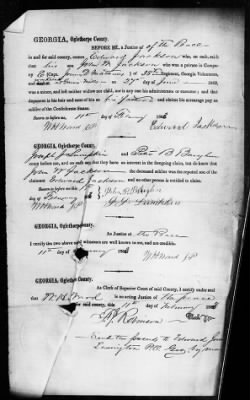 GEORGIA, Oglethorpe County.
BEFORE ME, a Justice of the Peace
in and for said county, comes Edward Jackson who, on oath, said
that his son John W Jackson who was a private in Company
Regiment, Georgia Volunteers,
27th day of June 186
was a minor, and left neither widow nor child, nor is any one his administrator or executor; and that
deponent is his heir and next of kin as his father and claims his arrearage pay as soldier of the
Confederate States.
Sworn to before me, 11th February 186
WH Wood JP Edward Jackson
GEORGIA, Oglethorpe County.
Joseph J Lumpkin and Peter B
came before me, and on oath say that they have no interest in the foregoing claim, but do know that
John W Jackson the deceased soldier was the reputed son of the
claimant Edward Jackson and no other person is entitled to claim.
Sworn to before me this 11th
February 186
WH Wood JP J J Lumpkin
GEORGIA, Oglethorpe County.
As Justice of the Peace
I certify the two above said witnesses are well known to me, and are credible.
11th day of February 186 WH Wood JP
GEORGIA, Oglethorpe County.
As Clerk of Superior Court of said County, I certify under seal
that W H Wood is an acting Justice of the peace
for said county, this 11th day of February 186
Robinson Clerk
to Edward
Lexington